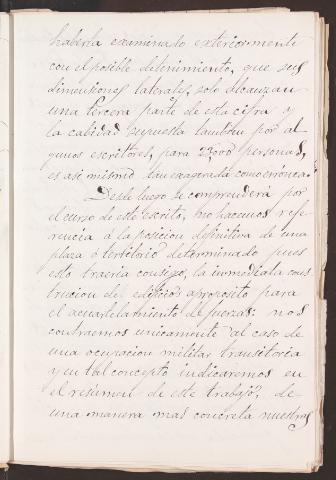 haberla examinado exteriormente
con el posible detenimiento, que sus
dimensiones laterales, solo alcanzan
una tercera parte de esta cifra y
la cabidad supuesta tambien por al
gunos escritores, para 23,000 personas,
es asi mismo tan exagerada como erronea.
Desde luego se comprenderá por
el curso de este escrito, no hacemos refe
rencia á la posicion definitiva de una
plaza ó territorio determinado pues
esto traeria consigo, la inmediata cons
truccion de edificios aproposito para
el acuartelamiento de fuerzas: nos
contraemos unicamente al caso de
una ocupacion militar transitoria
y en tal concepto indicaremos en
el resúmen de este trabajo, de
una manera mas concreta nuestras